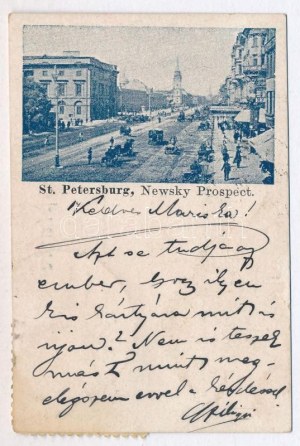 St. Petersburg, Newsky Prospect.
Kedves Mariska!
Azt se tudja az
ember, hogy ilyen
kis kártyára mit is
írjon? Nem is teszek
mást mint meg
elégszem evvel a kérdéssel